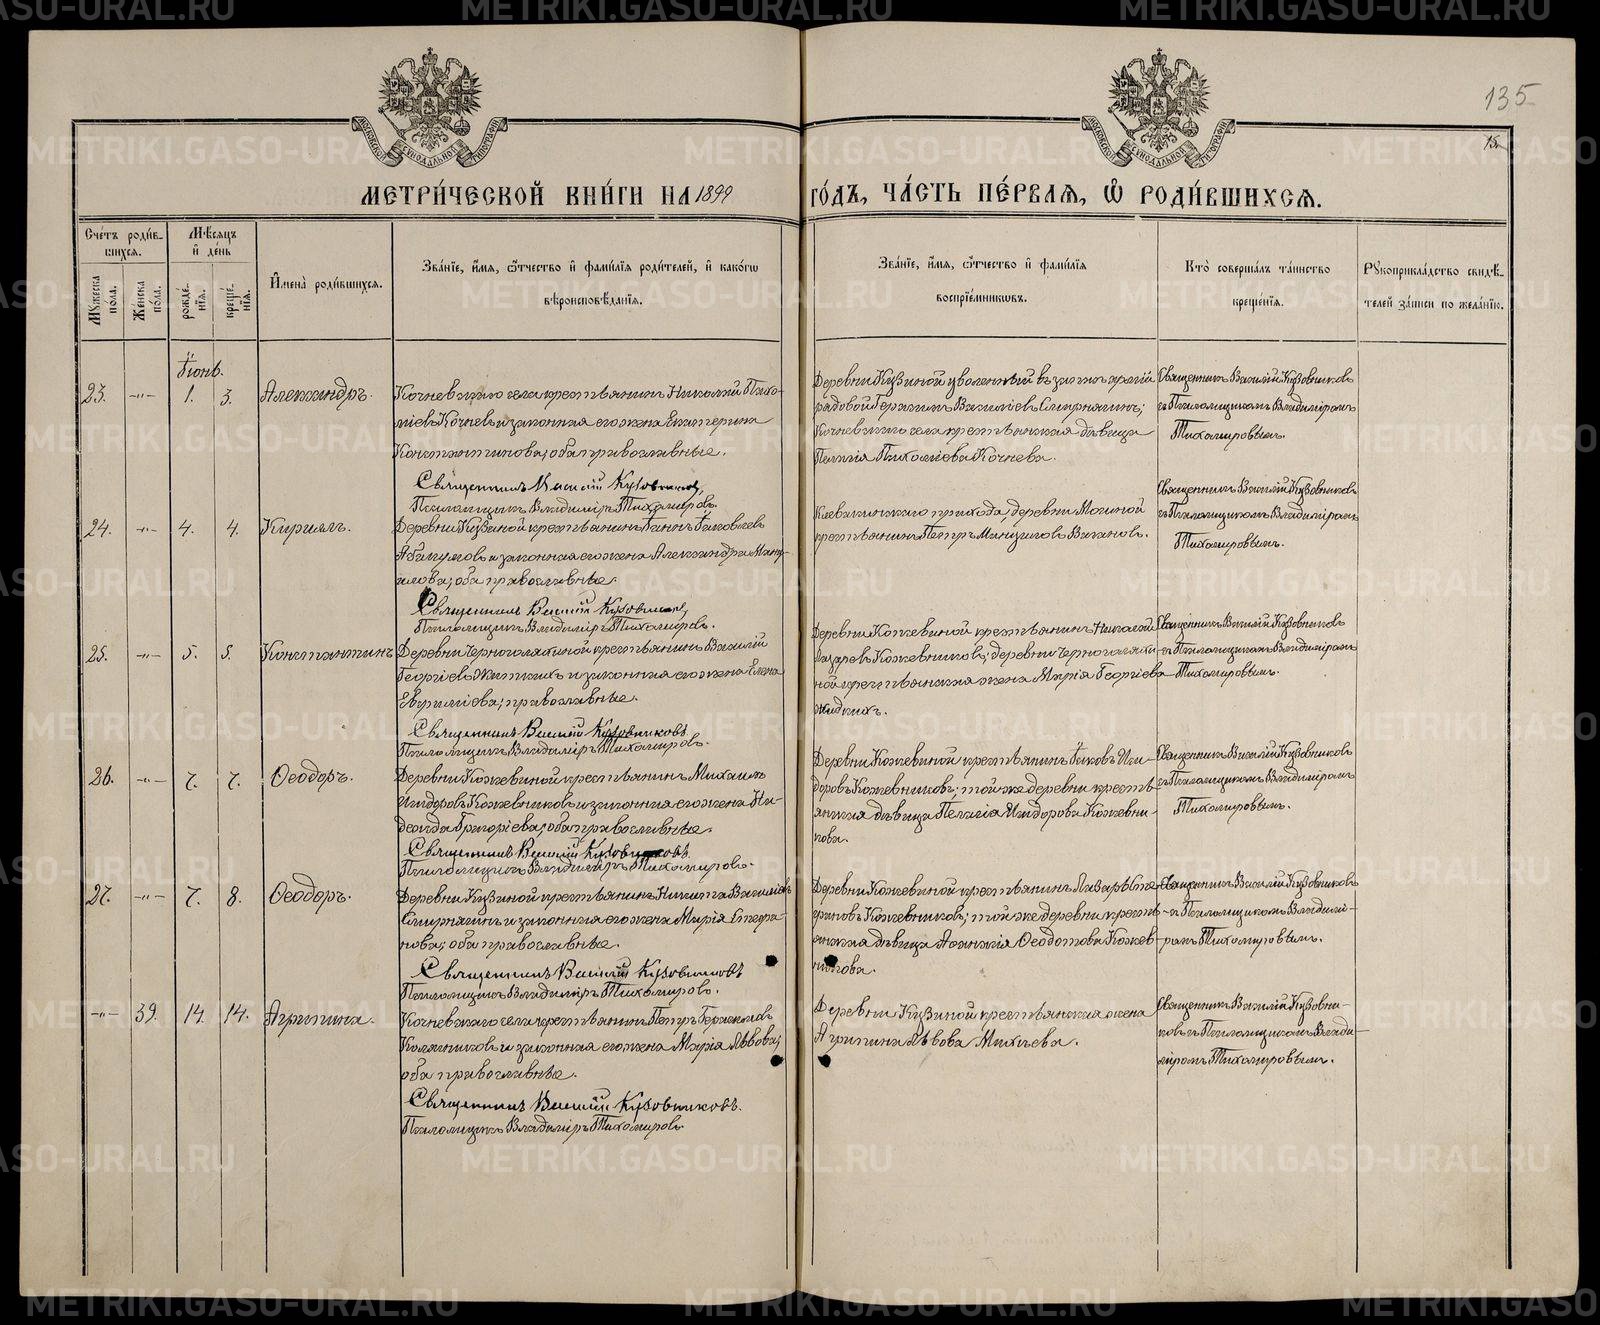 135
15
МЕТРИ́ЧЕСКОЙ КНИ́ГИ НА 1899
ГО́ДЪ, ЧА́СТЬ ПЕ́РВАЯ, Ѿ РОДИ́ВШИХСЯ.
Сче́тъ роди́в-
шихся.
Му́жеска по́ла.
Же́нска по́ла.
Мѣ́сяцъ и де́нь
рожде́-нїя.
креще́-нїя.
Имена̀ роди́вшихся.
Зва́нїе, и́мя, о́тчество и фами́лїя роди́телей, и како́гѡ
вѣроисповѣ́данїя.
Зва́нїе, и́мя, о́тчество и фами́лїя
воспрїе́мниковъ.
Кто̀ соверша́лъ та́инство
креще́нїя.
Рукоприкла́дство свидѣ́-
телей за́писи по жела́нїю.
Іюнь.
23. -"- 1. 3. Александръ.
Кочневскаго села крестьянинъ Николай
Кочневъ и законная его жена Екатерина
Константинова; оба православные.
Священникъ Василій Кузовниковъ
Псаломщикъ Владиміръ Тихомировъ.
Деревни Кузиной уволенный въ запасъ арміи
рядовой Герасимъ Васильевъ Смирнягинъ;
Кочневскаго села крестьянская дѣвица
Кочнева.
Священникъ Василій Кузовниковъ
съ Псаломщикомъ Владиміромъ
Тихомировымъ.
24. -"- 4. 4. Кириллъ.
Деревни Кузиной крестьянинъ
и законная его жена Александра
оба православные.
Священникъ Василій Кузовниковъ
Псаломщикъ Владиміръ Тихомировъ.
прихода, деревни
крестьянинъ Петръ
Священникъ Василій Кузовниковъ
съ Псаломщикомъ Владиміромъ
Тихомировымъ.
25. -"- 5. 5. Константинъ
Деревни крестьянинъ Василій
Георгіевъ и законная его жена Елена
православные.
Священникъ Василій Кузовниковъ
Псаломщикъ Владиміръ Тихомировъ.
Деревни Кожевиной крестьянинъ Николай
Лазаревъ Кожевниковъ; деревни
ной крестьянская жена Марія Георгіева
Священникъ Василій Кузовниковъ
съ Псаломщикомъ Владиміромъ
Тихомировымъ.
26. -"- 7. 7. Ѳеодоръ.
Деревни Кожевиной крестьянинъ Михаилъ
Исидоровъ Кожевниковъ и законная его жена Ки-
леонида Григоріева; оба православные.
Священникъ Василій Кузовниковъ.
Псаломщикъ Владиміръ Тихомировъ.
Деревни Кожевиной крестьянинъ Іаковъ Иси-
доровъ Кожевниковъ; той же деревни кресть-
янская дѣвица Пелагія Исидорова Кожевни-
кова.
Священникъ Василій Кузовниковъ
съ Псаломщикомъ Владиміромъ
Тихомировымъ.
27. -"- 7. 8. Ѳеодоръ.
Деревни Кузиной крестьянинъ Никита Васильевъ
Смирнягинъ и законная его жена Марія Стефа-
нова; оба православные.
Священникъ Василій Кузовниковъ
Псаломщикъ Владиміръ Тихомировъ.
Деревни Кожевиной крестьянинъ Лазарь Сте-
фановъ Кожевниковъ; той же деревни кресть-
янская дѣвица Ѳеодотова Кожев-
никова.
Священникъ Василій Кузовниковъ
съ Псаломщикомъ Владимі-
ромъ Тихомировымъ.
-"- 39. 14. 14. Агрипина.
Кочневскаго села крестьянинъ Петръ Герасимовъ
и законная его жена Марія Львова;
оба православные.
Священникъ Василій Кузовниковъ.
Псаломщикъ Владиміръ Тихомировъ
Деревни Кузиной крестьянская жена
Агрипина Львова Михѣева.
Священникъ Василій Кузовни-
ковъ съ Псаломщикомъ Влади-
міромъ Тихомировымъ.
METRIKI.GASO-URAL.RU